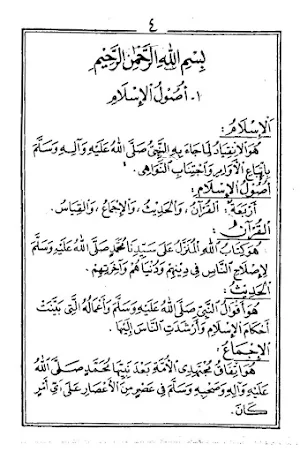 ٤
بِسْمِ اللهِ الرَّحْمٰنِ الرَّحِيْمِ
١- أُصُوْلُ الْإِسْلَامِ
الْإِسْلَامُ:
هُوَ الْاِنْقِيَادُ لِمَا جَاءَ بِهِ النَّبِيُّ صَلَّى اللهُ عَلَيْهِ وَآلِهِ وَسَلَّمَ
بِاتِّبَاعِ الْأَوَامِرِ وَاجْتِنَابِ النَّوَاهِي.
أُصُوْلُ الْإِسْلَامِ:
أَرْبَعَةٌ: اَلْقُرْآنُ، وَالْحَدِيْثُ، وَالْإِجْمَاعُ، وَالْقِيَاسُ.
اَلْقُرْآنُ:
هُوَ كِتَابُ اللهِ الْمُنَزَّلُ عَلَى سَيِّدِنَا مُحَمَّدٍ صَلَّى اللهُ عَلَيْهِ وَسَلَّمَ
لِإِصْلَاحِ النَّاسِ فِي دِيْنِهِمْ وَدُنْيَاهُمْ وَآخِرَتِهِمْ.
اَلْحَدِيْثُ:
هُوَ أَقْوَالُ النَّبِيِّ صَلَّى اللهُ عَلَيْهِ وَسَلَّمَ وَأَعْمَالُهُ الَّتِي بَيَّنَتْ
أَحْكَامَ الْإِسْلَامِ وَأَرْشَدَتِ النَّاسَ إِلَيْهَا.
اَلْإِجْمَاعُ:
هُوَ اتِّفَاقُ مُجْتَهِدِي الْأُمَّةِ بَعْدَ نَبِيِّهَا مُحَمَّدٍ صَلَّى اللهُ
عَلَيْهِ وَآلِهِ وَصَحْبِهِ وَسَلَّمَ فِي عَصْرٍ مِنَ الْأَعْصَارِ عَلَى أَيِّ أَمْرٍ
كَانَ.